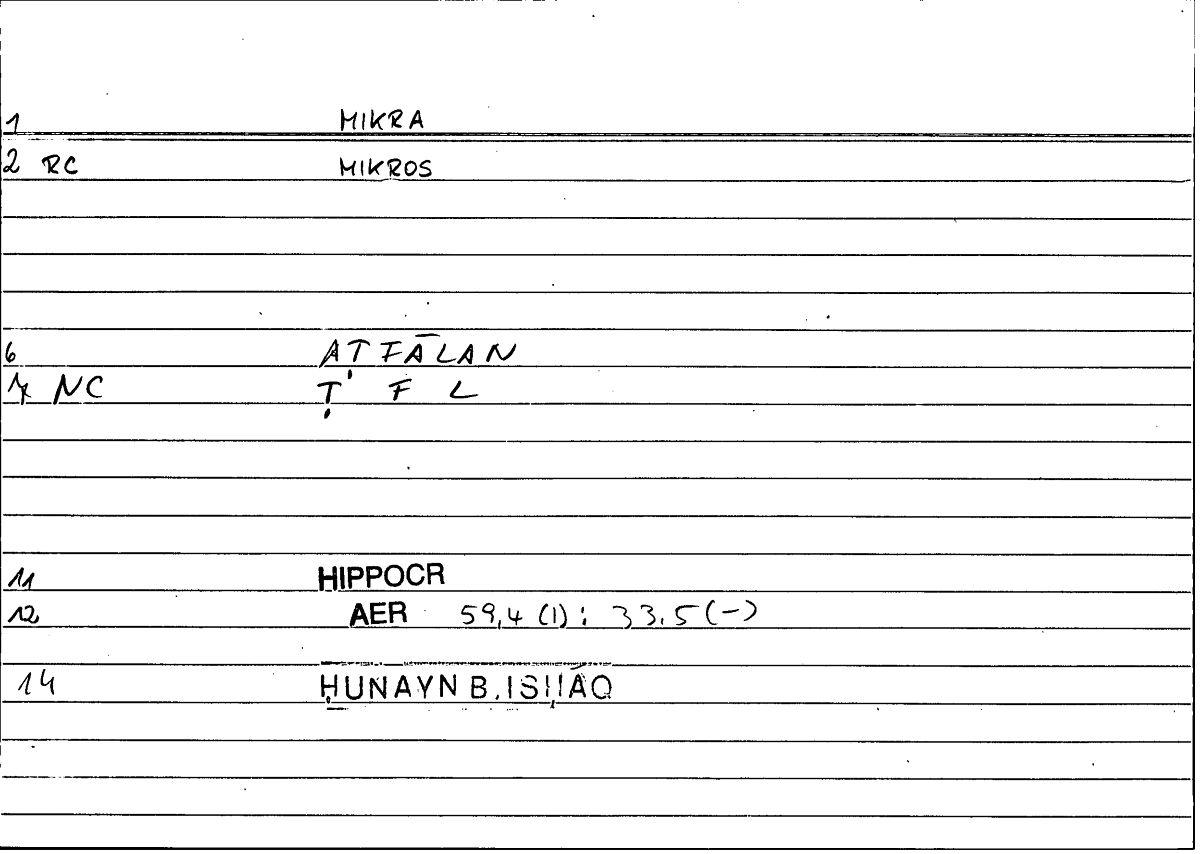 1 MIKRA
2 RC MIKROS
6 AṬFĀLAN
7 NC Ṭ F L
11 HIPPOCR
12 AER 59,4 (1) : 33,5 (-)
14 ḤUNAYN B. ISḤĀQ